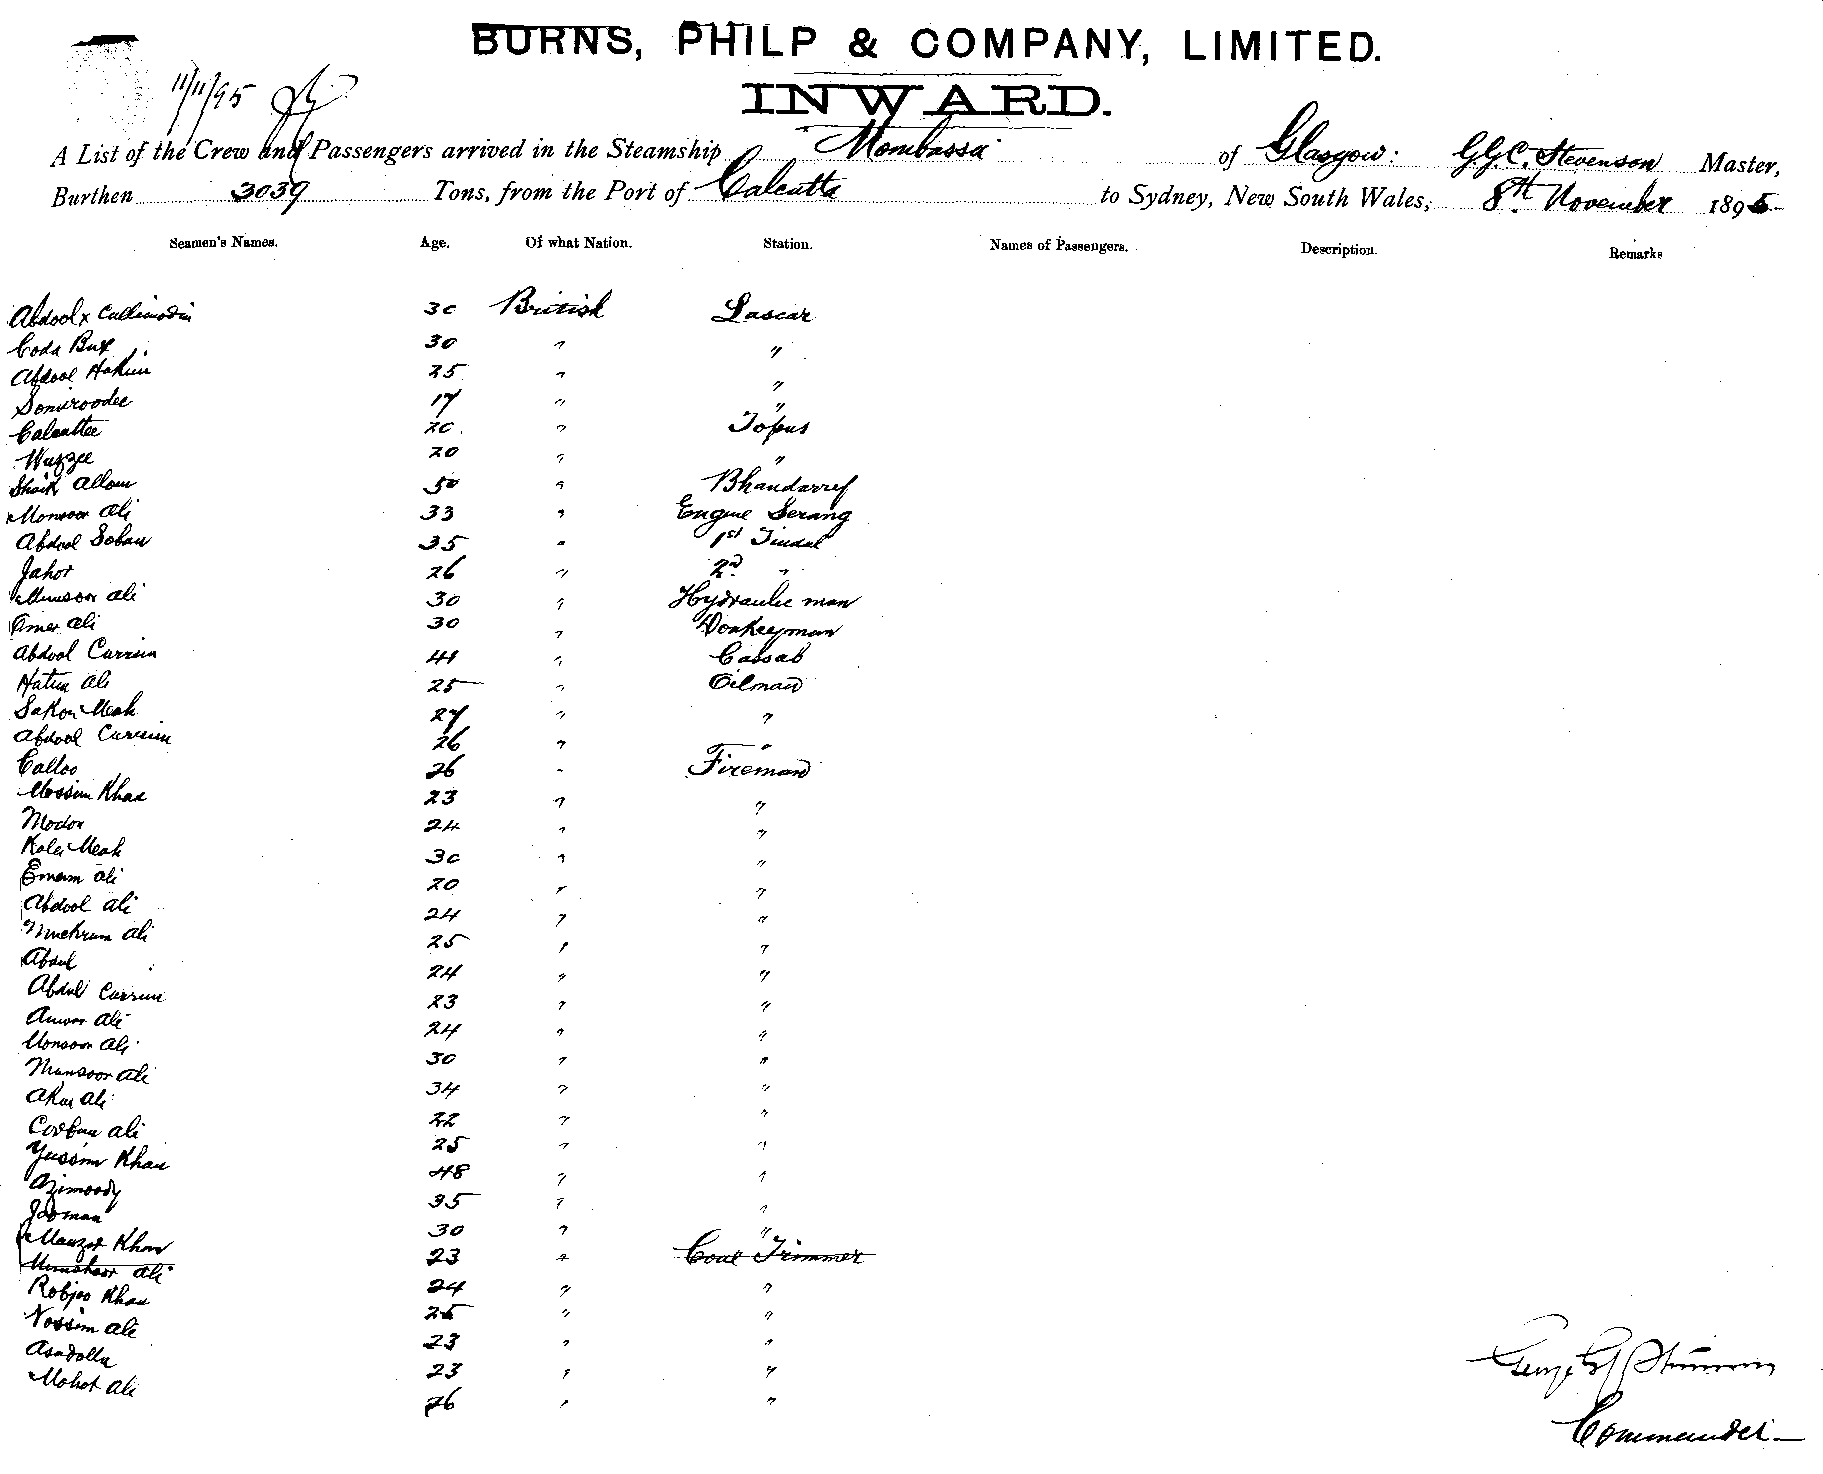 BURNS, PHILP & COMPANY, LIMITED.
INWARD.
11/11/95
A List of the Crew and Passengers arrived in the Steamship Mombassa of Glasgow: G.G.C. Stevenson Master,
Burthen 3039 Tons, from the Port of Calcutta to Sydney, New South Wales, 8th November 1895
Seamen's Names. Age. Of what Nation. Station. Names of Passengers. Description. Remarks
Abdool x 30 British Lascar
Coda Bux 30 " "
Abdool Hakim 25 " "
Somiroodee 17 " "
Calcuttee 20 " Topus
Wuzzee 20 " "
Shaik Allom 50 " Bhandarry
Monsoor Ali 33 " Engine Serang
Abdool Soban 35 " 1st Tindal
Jahor 26 " 2nd "
Munsoor Ali 30 " Hydraulic man
Amer Ali 30 " Donkeyman
Abdool Currim 41 " Cassab
Hatim Ali 25 " Oilman
Sakor Meah 27 " "
Abdool Currim 26 " "
Calloo 26 " Fireman
Mossim Khan 23 " "
Modon 24 " "
Kalei Meah 30 " "
Emam Ali 20 " "
Abdool Ali 24 " "
Muchrum Ali 25 " "
Abdul 24 " "
Abdul Currim 23 " "
Anwar Ali 24 " "
Monsoor Ali 30 " "
Munsoor Ali 34 " "
Akur Ali 22 " "
Corban Ali 25 " "
Yussim Khan 48 " "
Azimoody 35 " "
Jooman 30 " "
Mauzor Khan 23 " Coal Trimmer
Munshoor Ali 24 " "
Robjoo Khan 25 " "
Nossim Ali 23 " "
Asadolla 23 " "
Mohot Ali 26 " "
Commander